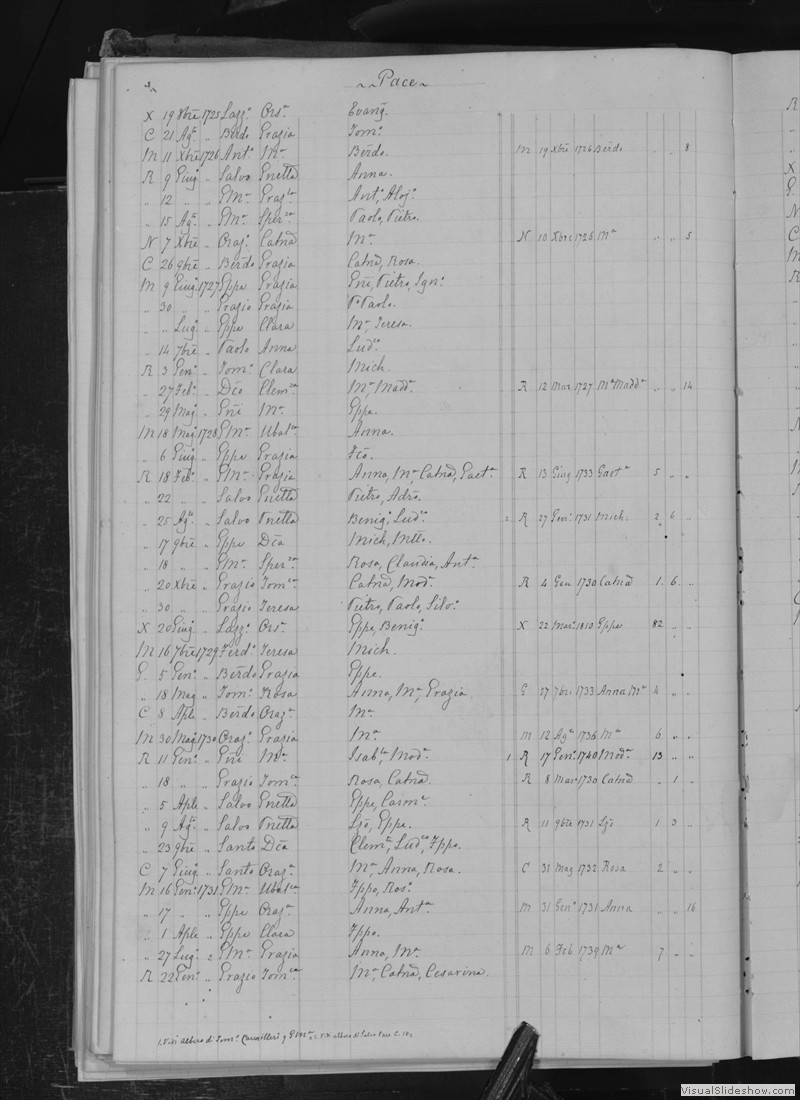 ~ Pace ~
X 19 Xbre 1725 Lazz.o Ors.a Evang.
C 21 Ag.o " Berdo Grazia Tom.o
M 11 Xbre 1726 Ant.o M.a Berdo. M 19 Xbre 1726 Berdo " " 8
R 9 Giug " Salvo Gnetta Anna.
" 12 " " G.M.a Ant.o, Aloj.o
" 15 Ag.o " G.M.a Sper.za Paolo, Pietro.
N 7 Xbre " Oraz.o Catnã M.a N 10 Xbre 1726 M.a " " 5
C 26 9bre " Berdo Grazia Catnã, Rosa.
M 9 Giug 1727 Gppe Grazia Gñi, Pietro, Ign.o
" 30 " " Grazio Grazia P. Paolo.
" " Lug.o " Gppe Clara M.a, Teresa.
" 14 7bre " Paolo Anna Lud.o
R 3 Gen.o " Tom.o Clara Mich.
" 27 Feb.o " Dco Clem.za M.a, Madd.a R 12 Mar 1727 M.a Madd.a " " 14
" 29 Mag " Gñi M.a Gppe.
M 18 Mag 1728 G.M.a Ubal.ca Anna.
" 6 Giug " Gppe Grazia Fco.
R 18 Feb.o " G.M.a Grazia Anna, M.a, Catnã, Gaet.a R 13 Giug 1733 Gaet.a 5 " "
" 22 " " Salvo Gnetta Pietro, Adro.
" 25 Ag.o " Salvo Vnetta Benig.o, Lud.o 2 R 27 Gen.o 1731 Mich. 2 6 "
" 17 9bre " Gppe Dca Mich, Mllo.
" 18 " " G.M.a Sper.za Rosa, Claudia, Ant.a
" 20 Xbre " Grazio Tom.ca Catnã, Mod.a R 4 Gen 1730 Catnã 1 6 "
" 30 " " Grazio Teresa Pietro, Paolo, Silv.o
X 20 Giug " Lazz.o Ors.a Gppe, Benig.o X 22 Mar.o 1810 Gppe 82 " "
M 16 7bre 1729 Ferd.o Teresa Mich.
G. 5 Gen.o " Berdo Grazia Gppe.
" 18 Mag " Tom.o Rosa Anna, M.a, Grazia G 27 7bre 1733 Anna M.a 4 " "
C 8 Aple " Berdo Oraz.a M.a
M 30 Mag 1730 Oraz.o Grazia M.a M 12 Ag.o 1736 M.a 6 " "
R 11 Gen.o " Gñi M.a Isab.la, Mod.a 1 R 17 Gen.o 1740 Mod.a 13 " "
" 18 " " Grazio Tom.ca Rosa, Catnã. R 8 Mar 1730 Catnã " 1 "
" 5 Aple " Salvo Gnetta Gppe, Carm.a
" 9 Ag.o " Salvo Vnetta Lzo, Gppe. R 11 9bre 1731 Lzo 1 3 "
" 23 9bre " Santo Dca Clem.te, Lud.co, Fppo.
C 7 Giug " Santo Oraz.a M.a, Anna, Rosa. C 31 Mag 1732 Rosa 2 " "
M 16 Gen.o 1731 G.M.a Ubal.ca Fppo, Ros.o
" 17 " " Gppe Oraz.a Anna, Ant.a M 31 Gen.o 1731 Anna " " 16
" 1 Aple " Gppe Clara Fppo.
" 27 Lug.o " G.M.a Grazia Anna, M.a M 6 Feb 1739 M.a 7 " "
R 22 Gen.o " Grazio Tom.ca M.a, Catnã, Cesarina.
1. Vidi albero di Tom.o Camilleri
VisualSlideshow.com